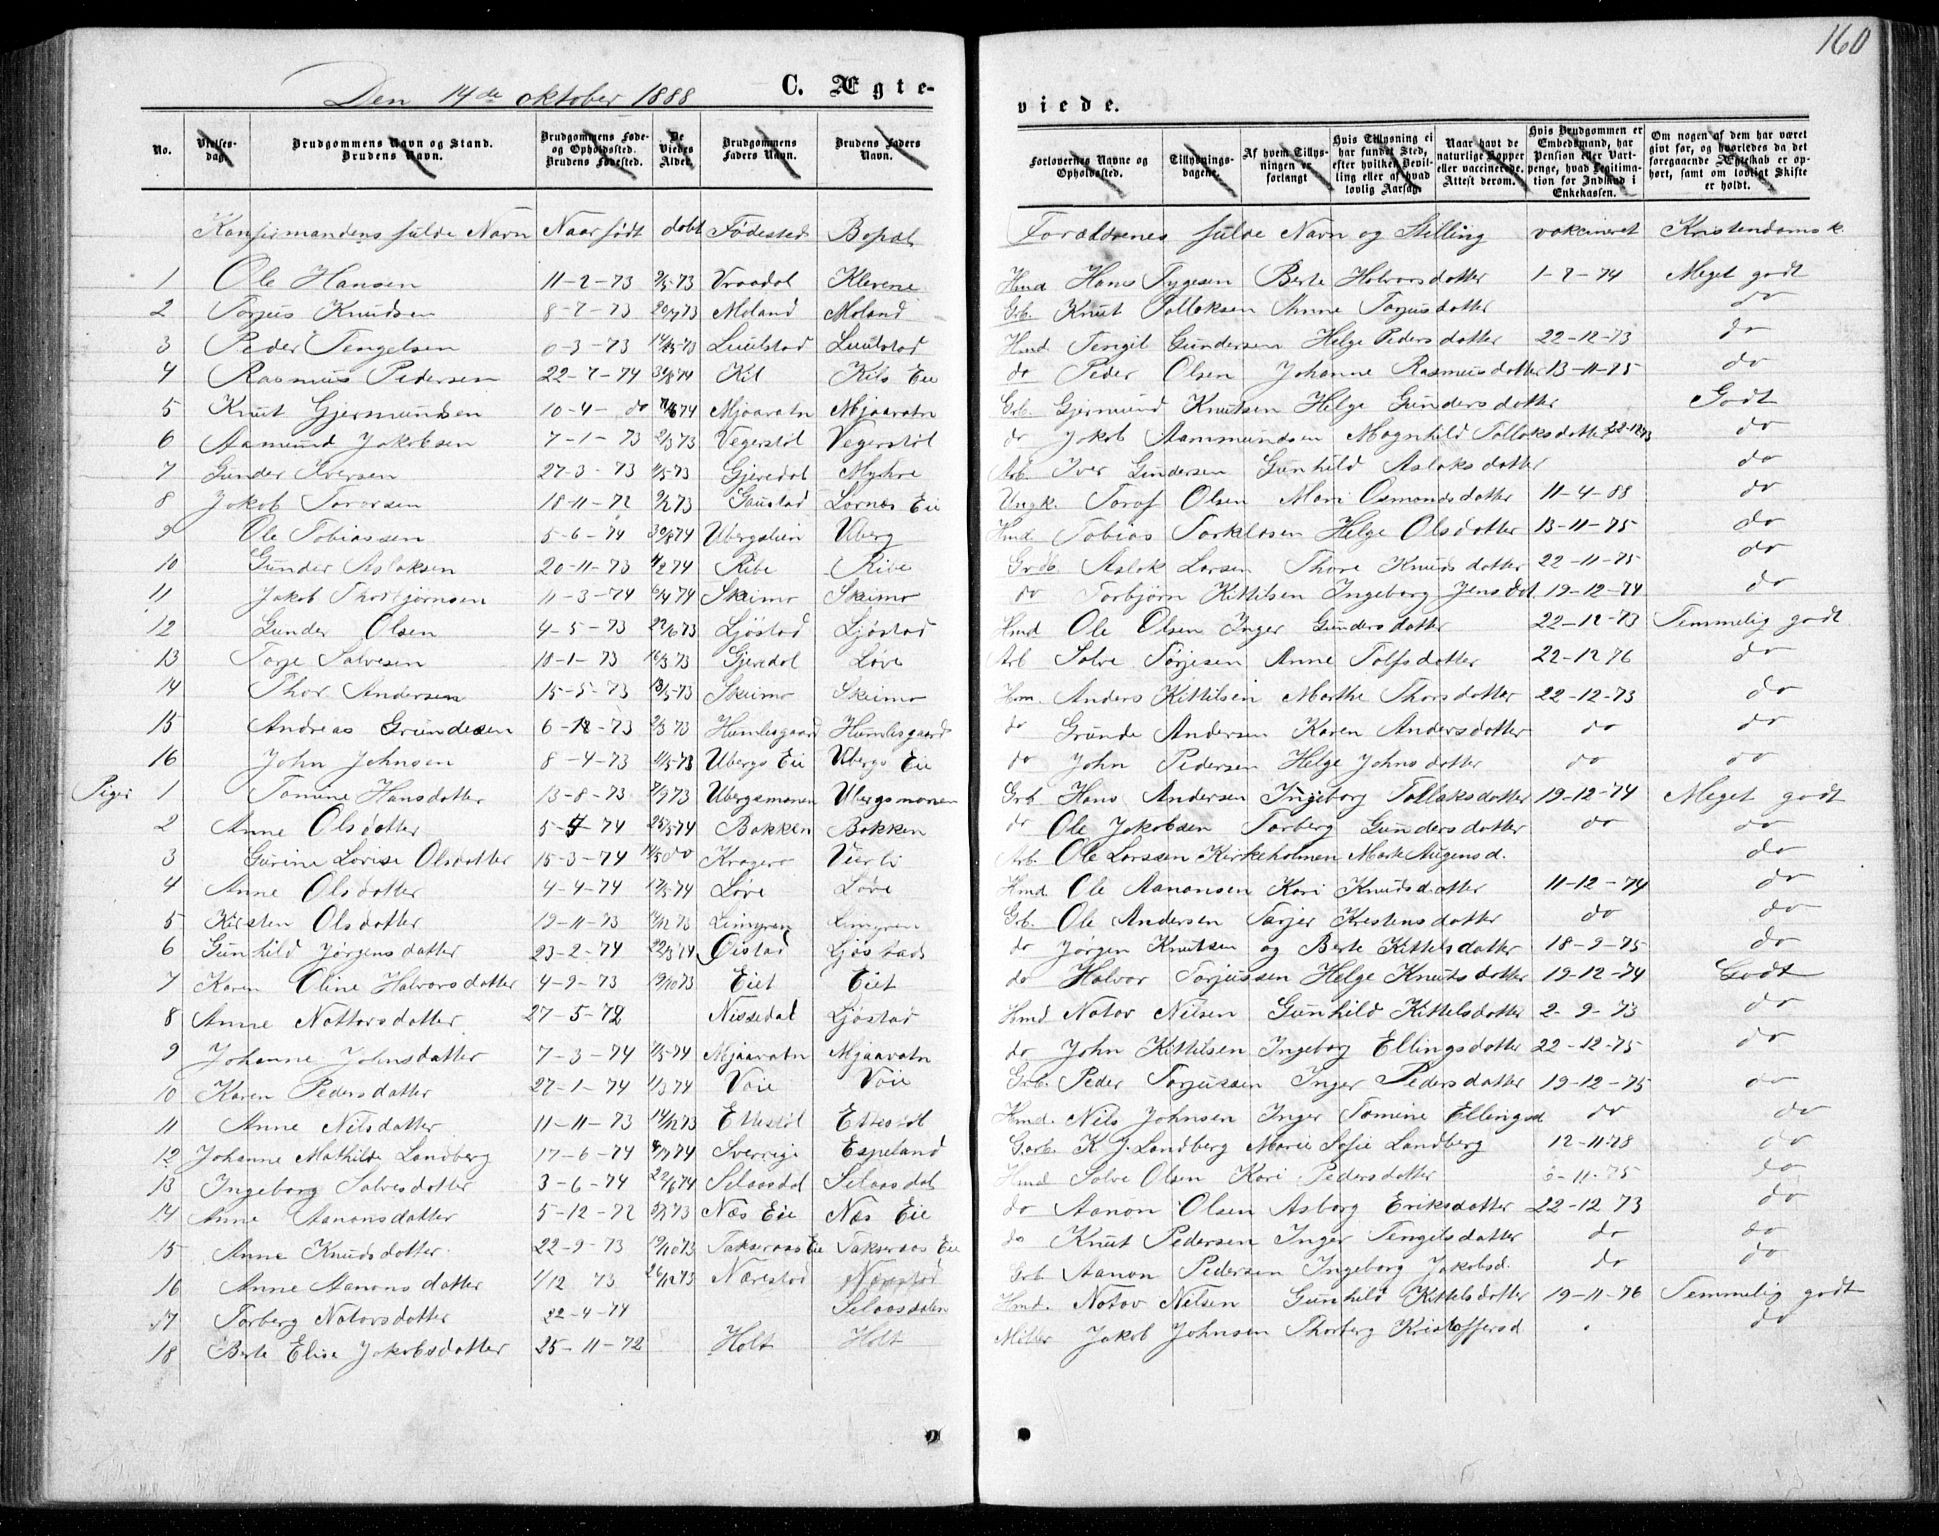 160
Den 14de Oktober 1888 C. Ægte-
viede.
No. Vielses-dag. Brudgommens Navn og Stand. Brudens Navn. Brudgommens Føde- og Opholdssted. Brudens Fødested. De Viedes Alder. Brudgommens Faders Navn. Brudens Faders Navn.
Forlovernes Navne og Opholdssted. Tillysnings-dagene. Af hvem Tillysningen er forlangt Hvis Tillysning ei har fundet Sted, efter hvilken Bevilling eller af hvad lovlig Aarsag. Naar havt de naturlige Kopper eller vaccinerede. Attest derom. Hvis Brudgommen er Embedsmand, har Pension eller Vartpenge, hvad Legitimation for Indskud i Enkekassen. Om nogen af dem har været givt før, og hvorledes da det foregaaende Ægteskab er ophørt, samt om lovligt Skifte er holdt.
Konfirmandens fulde Navn Naar født døbt Fødested Bopæl Forældrenes fulde Navn og Stilling vakcineret Kristendomsk.
1 Ole Hansen 11-2-73 2/5-73 Vraadal Klevene Hmd Hans Tygesen Berte Halvorsdatter 1-7-74 Meget godt
2 Torjus Knudsen 8-7-73 20/7 73 Moland Moland Grb. Knut Tollaksen Anne Torjusdotter do
3 Peder Tengelsen 0-3-73 Luulstad Luulstad Hmd Tengil Gundersen Helge Pedersdotter 22-12-73 do
4 Rasmus Pedersen 22-7-74 31/8 74 Kil Kils Eie do Peder Olsen Johanne Rasmusdotter 13-11-75 do
5 Knut Gjermundsen 10-4- do Mjaavatn Mjaavatn Grb. Gjermund Knutsen Helge Gundersdotter Godt
6 Aamund Jakobsen 7-1-73 2/3 73 Vegerstøl Vegerstøl do Jakob Aammundsen Magnhild Tollaksdotter 22-12-73 do
7 Gunder Iversen 27-3-73 2/5-73 Gjeredal Myhre Arb. Iver Gundersen Gunhild Aslaksdotter do
8 Jakob Torarsen 18-11-72 2/2 73 Gaustad Lornæs Eie Ungk. Toraf Olsen Mari Osmondsdotter 11-4-88 do
9 Ole Tobiassen 5-6-74 30/8 74 Ubergslien Uberg Hmd. Tobias Torklosen Helge Olsdotter 13-11-75 do
10 Gunder Aslaksen 20-11-73 4/2 74 Ribe Ribe Grdb Aslak Larsen Thore Knudsdotter 22-11-75 do
11 Jakob Thorbjørnsen 11-3-74 6/4 74 Skeimo Skeimo do Torbjørn Kittilsen Ingeborg Jensdot 19-12-74 do
12 Gunder Olsen 4-5-73 22/6 73 Ljøstad Ljøstad Hmd Ole Olsen Inger Gundersdotter 22-12-73 Temmelig godt
13 Torje Salvesen 10-1-73 16/3 73 Gjeredal Løve Arb Salve Torjesen Anne Tolfsdotter 22-12 76 do
14 Thor Andersen 15-5-73 Skeimo Skeimo Hm. Anders Kittilsen Marthe Thorsdotter 22-12-73 do
15 Andreas Grundesen 6-12-73 2/3 73 Humlesgaard Humlesgaard do Grunde Andersen Karen Andersdotter do do
16 John Johnsen 8-4-73 Ubergs Eie Ubergs Eie do John Pedersen Helge Johnsdotter do do
Piger 1 Tomine Hansdotter 13-8-73 2/9 73 Ubergsmonen Ubergsmonen Grb Hans Andersen Ingeborg Tollaksdotter 19-12-74 Meget godt
2 Anne Olsdotter 5-4-74 25/5 74 Bakken Bakken do Ole Jakobsen Torberg Gundersdotter do do
3 Gurine Lovise Olsdotter 15-3-74 14/5 do Kragerø Vierli Arb. Ole Larssen Kirkeholmen Marte Augensd. do
4 Anne Olsdotter 4-4-74 17/5-74 Løve Løve Hmd Ole Aanonsen Kari Knudsdatter 11-12-74 do
5 Kirsten Olsdotter 19-11-73 73 Limyren Limyren Grb. Ole Andersen Tarjer Kestensdotter do do
6 Gunhild Jørgensdatter 23-2-74 22/3 74 Øistad Ljøstad do Jørgen Knutsen og Berte Kittelsdatter 18-9-75 do
7 Karen Oline Halvorsdotter 4-9-73 19/10 73 Eiet Eiet do Halvor Torjussen Helge Knutsdotter 19-12-74 Godt
8 Anne Nottorsdotter 27-5-72 Nissedal Ljøstad Hmd Notov Nilsen Gunhild Kittelsdotter 2-9-73 do
9 Johanne Johnsdatter 7-3-74 Mjaavatn Mjaavatn do John Kittilsen Ingeborg Ellingsdotter 22-12-75 do
10 Karen Pedersdatter 27-1-74 1/3 74 Voie Voie Grb. Peder Torjussen Inger Pedersdatter 19-12-75 do
11 Anne Nilsdatter 11-11-73 14/12 73 Ettestøl Ettestøl Hmd. Nils Johnsen Inger Tomine Ellingsd do do
12 Johanne Mathilde Landberg 17-6-74 Sverrige Espeland Gorb. K J. Landberg Marie Sofie Landberg 12-11-78 do
13 Ingeborg Salvesdotter 3-6-74 Selaasdal Selaasdal Hmd Salve Olsen Kari Pedersdotter 6-11-75 do
14 Anne Aanonsdatter 5-12-72 73 Næs Eie Næs Eie do Aanon Olsen Asborg Eriksdatter 22-12 73 do
15 Anne Knudsdotter 22-9-73 19/10 73 Takseraas Eie Takseraas Eie do Knut Pedersen Inger Tengilsdatter do do
16 Anne Aanonsdatter 1/12 73 26/12 73 Nærestad Nærestad Grb Aanon Pedersen Ingeborg Jakobsd. do do
17 Torberg Notovsdotter 22-4-74 Selaasdalen Hmd. Notov Nilsen Gunhild Kittelsdotter 19-11-76 Temmelig godt
18 Berte Elise Jakobsdatter 25-11-72 Holt Holt Møller Jakob Johnsen Thorberg Kristoffersd do